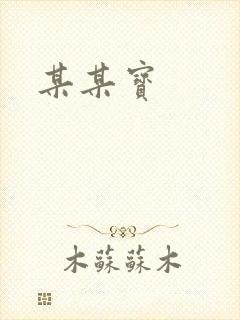 某某寶
木蘇蘇木